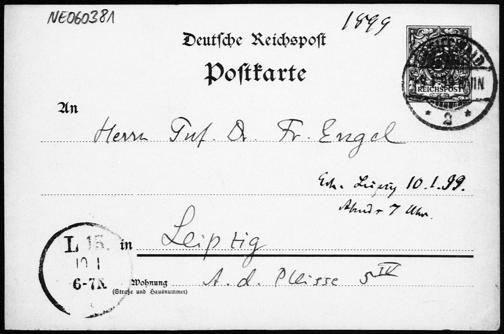 NE060381
1899
Deutsche Reichspost
Postkarte
REICHSPOST
* 2 *
An
Herrn Prof. Dr. Fr. Engel
Leipzig 10.1.99.
Abends 7 Uhr.
L 15.
10 1
6-7N.
in Leipzig
Wohnung
(Straße und Hausnummer)
A. d. Pleisse 5 IV